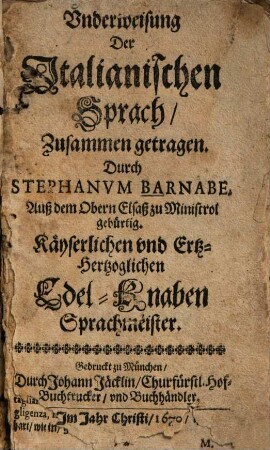 Vnderweisung
Der
Italianischen
Sprach/
Zusammen getragen.
Durch
STEPHANVM BARNABE,
Auß dem Obern Elsaß zu Ministrol
gebürtig.
Käyserlichen vnd Ertz-
Hertzoglichen
Edel-Knaben
Sprachmeister.
Gedruckt zu München/
Durch Johann Jäcklin/ Churfürstl. Hof-
Buchtrucker/ vnd Buchhändler.
gligenza, Im Jahr Christi/ 1670/
hart/ wie in/
M.